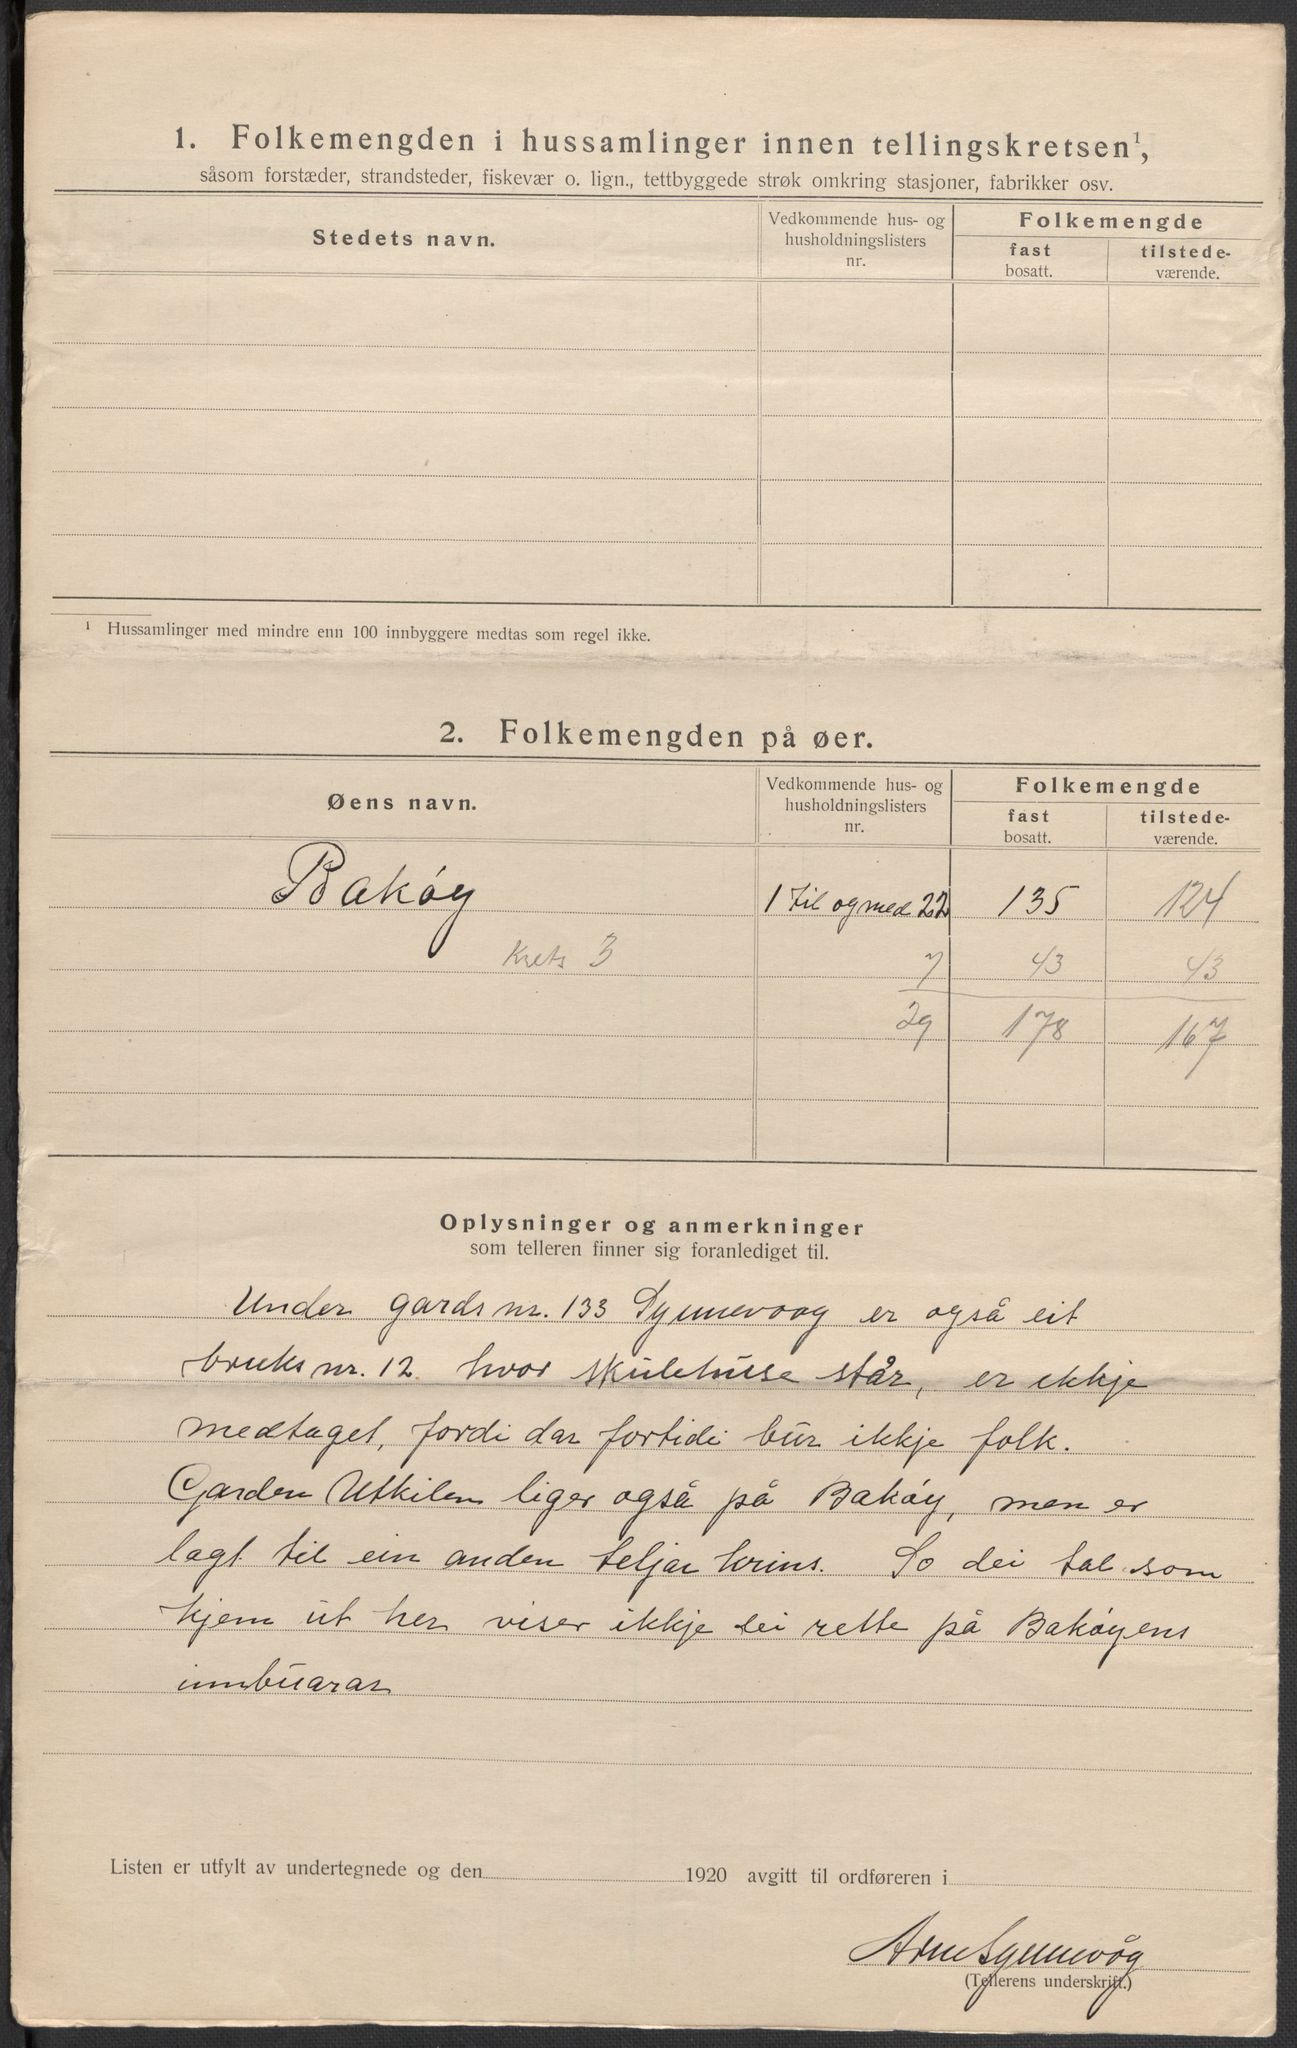 1. Folkemengden i hussamlinger innen tellingskretsen¹,
såsom forstæder, strandsteder, fiskevær o. lign., tettbyggede strøk omkring stasjoner, fabrikker osv.
Stedets navn.
Vedkommende hus- og
husholdningslisters
nr.
Folkemengde
fast
bosatt.
tilstede-
værende.
¹ Hussamlinger med mindre enn 100 innbyggere medtas som regel ikke.
2. Folkemengden på øer.
Øens navn.
Vedkommende hus- og
husholdningslisters
nr.
Folkemengde
fast
bosatt.
tilstede-
værende.
Bakøy 1 til og med 22 135 124
Krets 3 7 43 43
29 178 167
Oplysninger og anmerkninger
som telleren finner sig foranlediget til.
Under gards nr. 133 Synnevaag er også eit
bruks nr. 12 hvor skulehuse står, er ikkje
medtaget, fordi dar fortidi bur ikkje folk.
Garden Utkilen liger også på Bakøy, men er
lagt til ein anden teljar krins. So dei tal som
kjem ut her viser ikkje dei rette på Bakøyens
innbuarar
Listen er utfylt av undertegnede og den 1920 avgitt til ordføreren i
Arne Synnevåg
(Tellerens underskrift.)